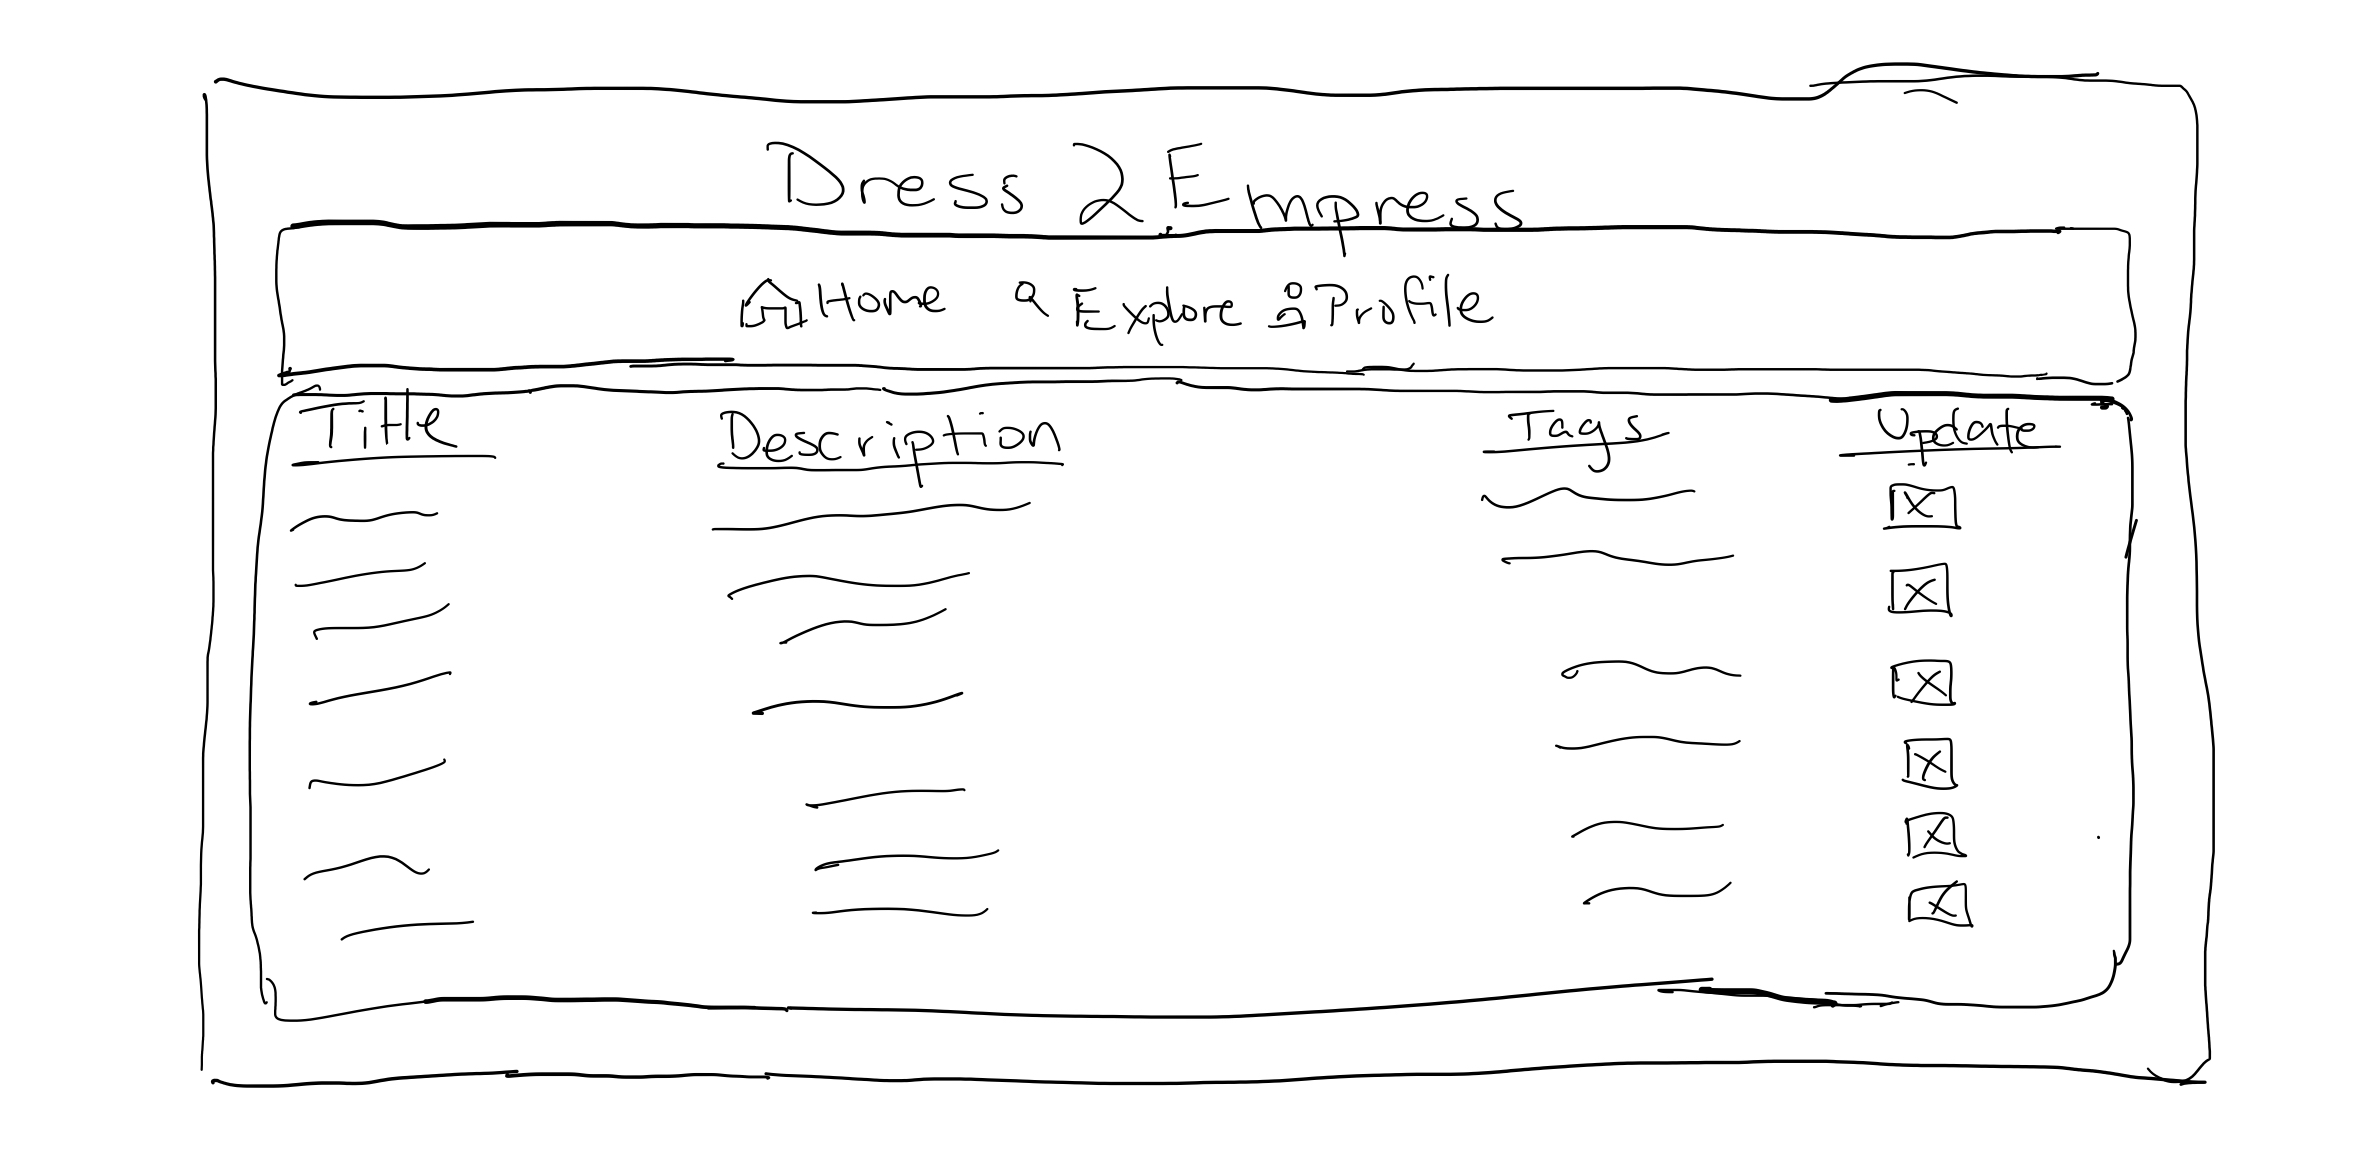 Dress 2 Empress
Home Explore Profile
Title Description Tags Update
X
X
X
X
X
X